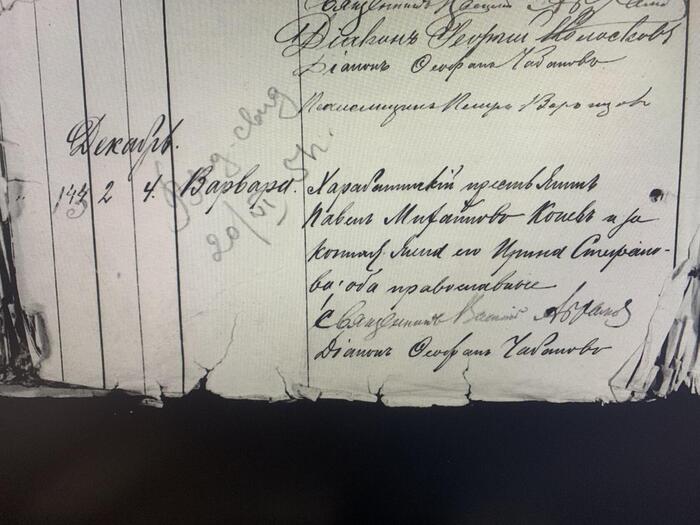 Священникъ Василій Абрамовъ
Діаконъ Георгій Колосковъ
Діаконъ Ѳеофанъ Чабановъ
Псаломщикъ Петръ Воронцовъ
Декабрь.
Выд. свид
20/VI 57г.
143 2 4. Варвара. Харабалинскій крестьянинъ
Павелъ Михайловъ Коневъ и за
конная жена его Ирина Стефано-
ва; оба православные
Священникъ Василій Абрамовъ
Діаконъ Ѳеофанъ Чабановъ